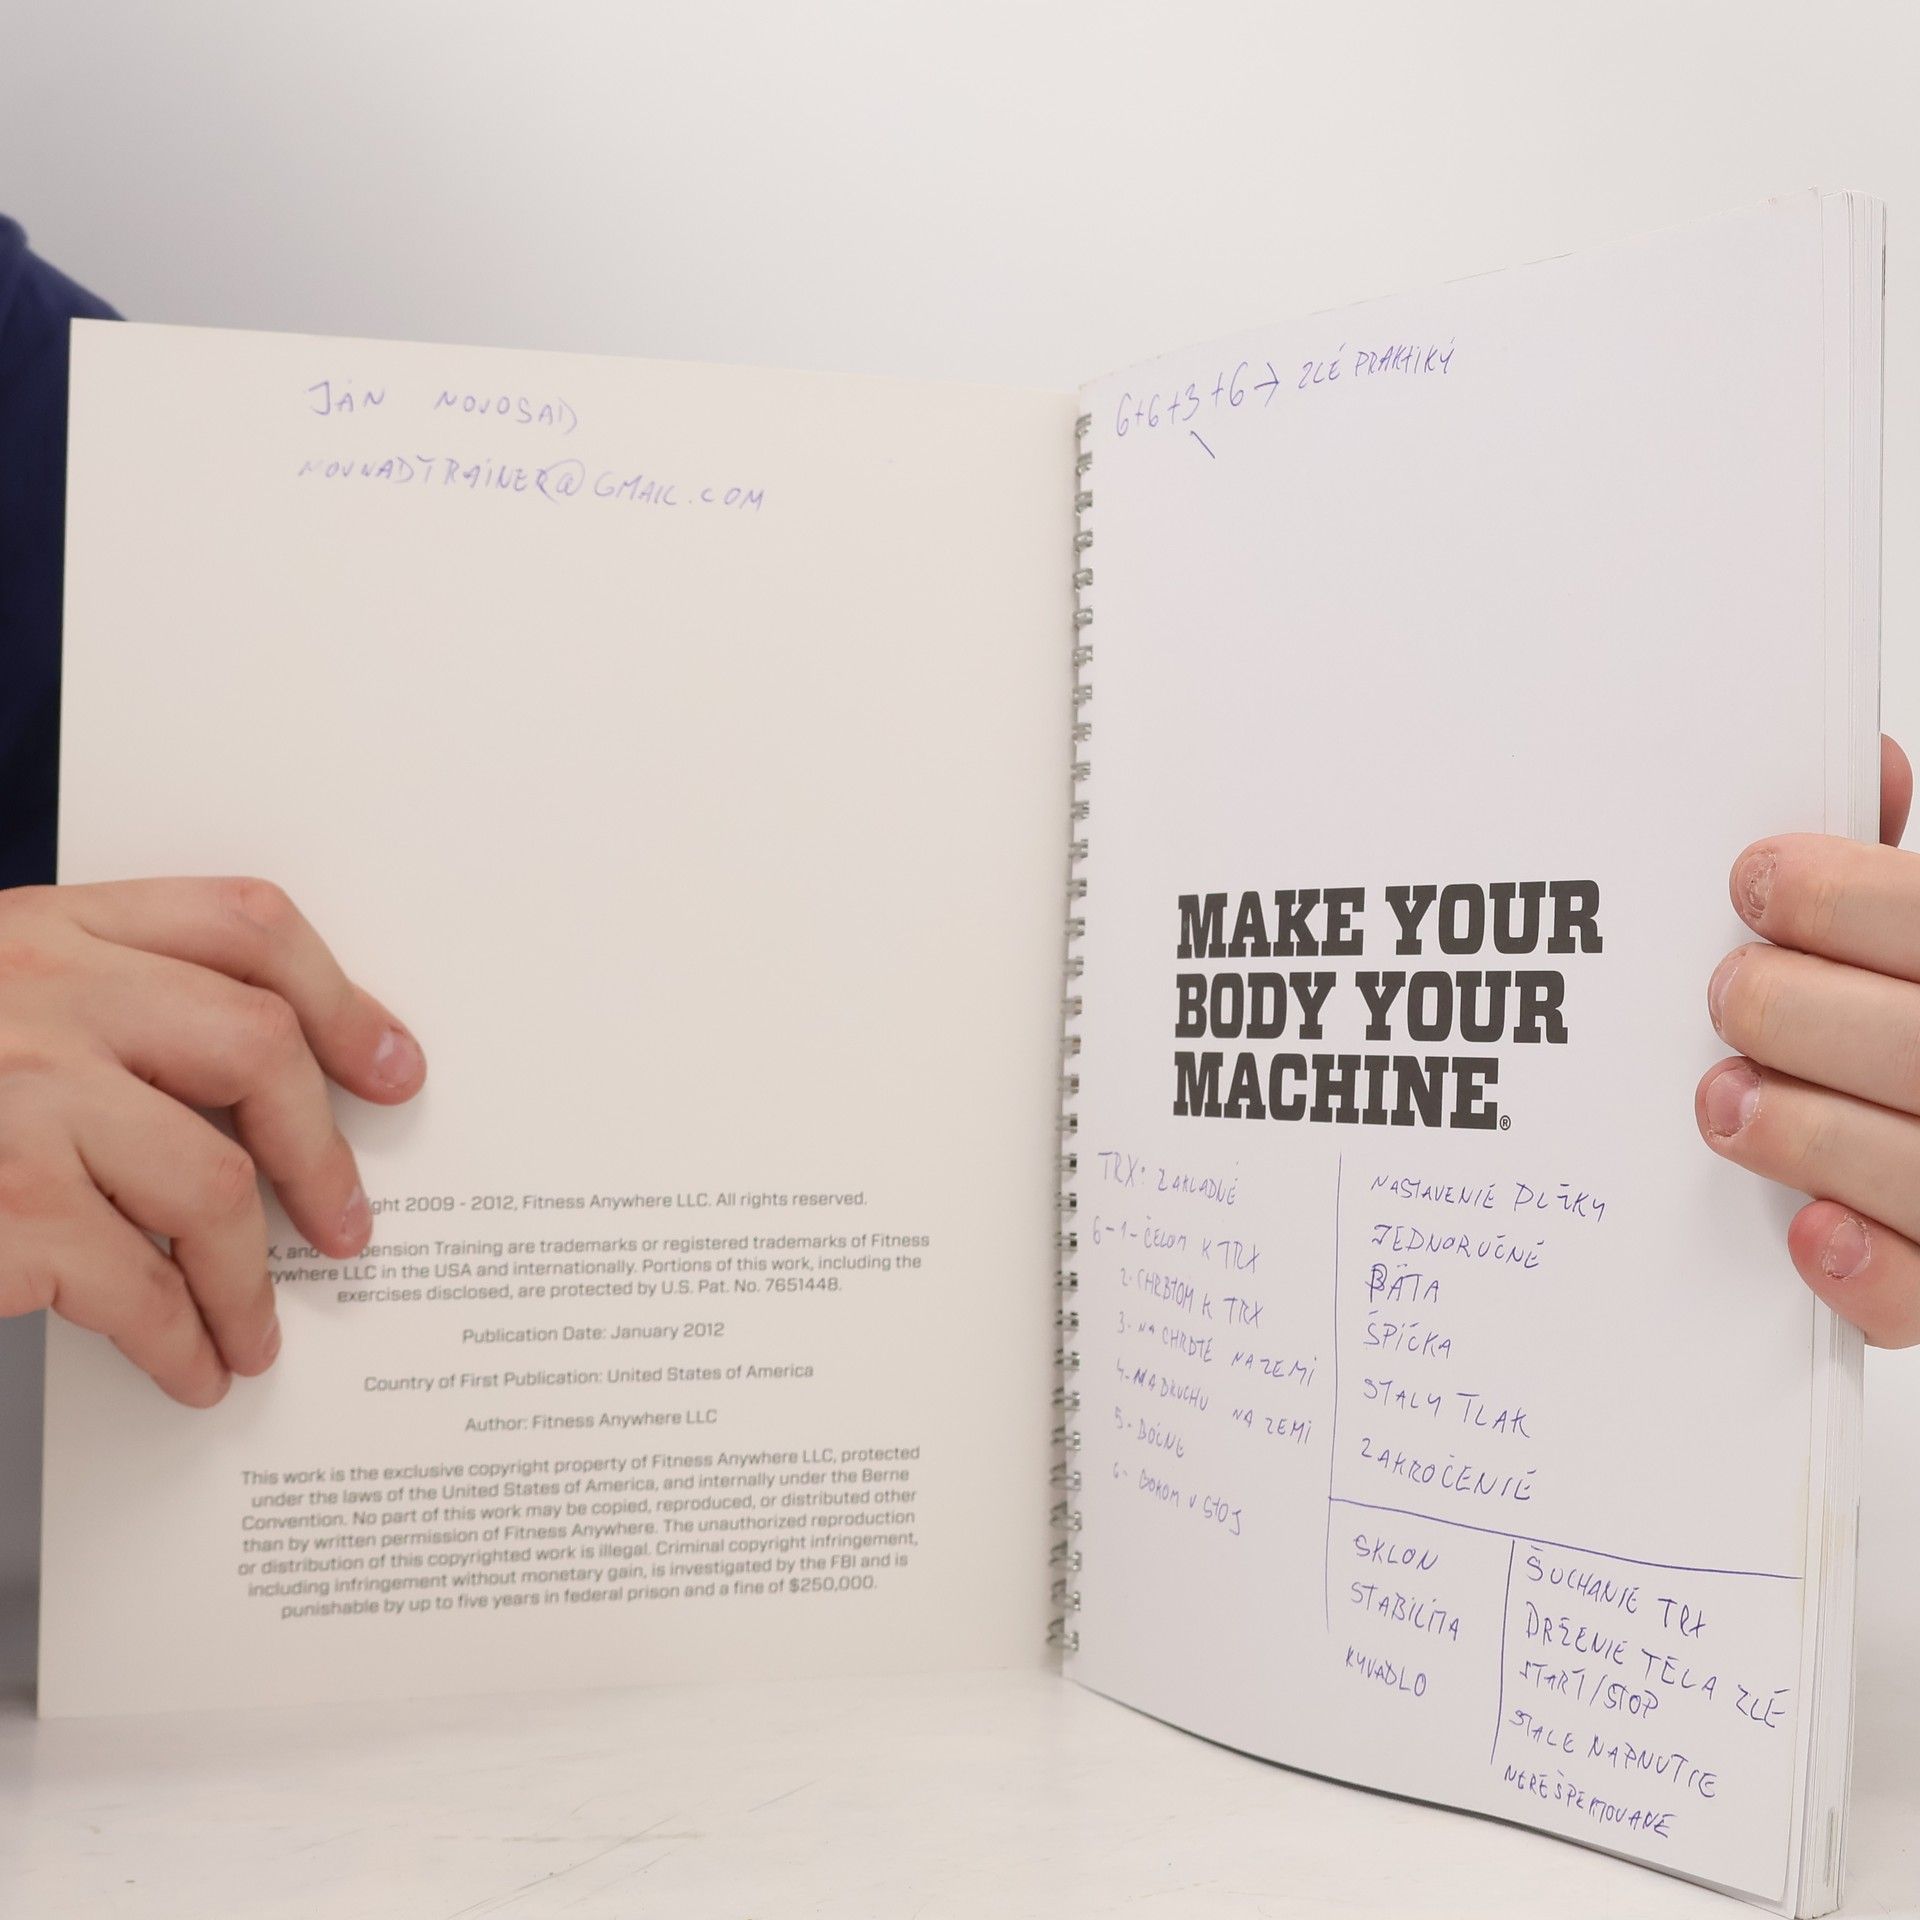 JÁN NOVOSAD
NOVNADTRAINER@GMAIL.COM
ght 2009 - 2012, Fitness Anywhere LLC. All rights reserved.
X, and pension Training are trademarks or registered trademarks of Fitness
ywhere LLC in the USA and internationally. Portions of this work, including the
exercises disclosed, are protected by U.S. Pat. No. 7651448.
Publication Date: January 2012
Country of First Publication: United States of America
Author: Fitness Anywhere LLC
This work is the exclusive copyright property of Fitness Anywhere LLC, protected
under the laws of the United States of America, and internally under the Berne
Convention. No part of this work may be copied, reproduced, or distributed other
than by written permission of Fitness Anywhere. The unauthorized reproduction
or distribution of this copyrighted work is illegal. Criminal copyright infringement,
including infringement without monetary gain, is investigated by the FBI and is
punishable by up to five years in federal prison and a fine of $250,000.
6+6+3+6→ ZLÉ PRAKTIKÝ
MAKE YOUR
BODY YOUR
MACHINE®
TRX: ZÁKLADNÉ
6-1-ČELOM K TRX
2-CHRBTOM K TRX
3-NA CHRBTE NA ZEMI
4-NA BRUCHU NA ZEMI
5-BOČNE
6-BOKOM V STOJ
NASTAVENIE DĹŽKY
JEDNORUČNÉ
PÄTA
ŠPIČKA
STALY TLAK
ZAKROČENIE
SKLON
STABILITA
KYVADLO
ŠUCHANIE TRX
DRŽENIE TELA ZLÉ
START/STOP
STALE NAPNUTIE
NEREŠPEKTOVANÉ